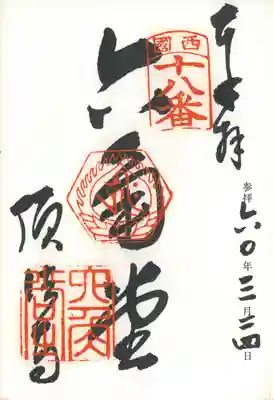 奉拝
参拝六〇年三月二四日
西國
十八番
六角堂
頂法寺